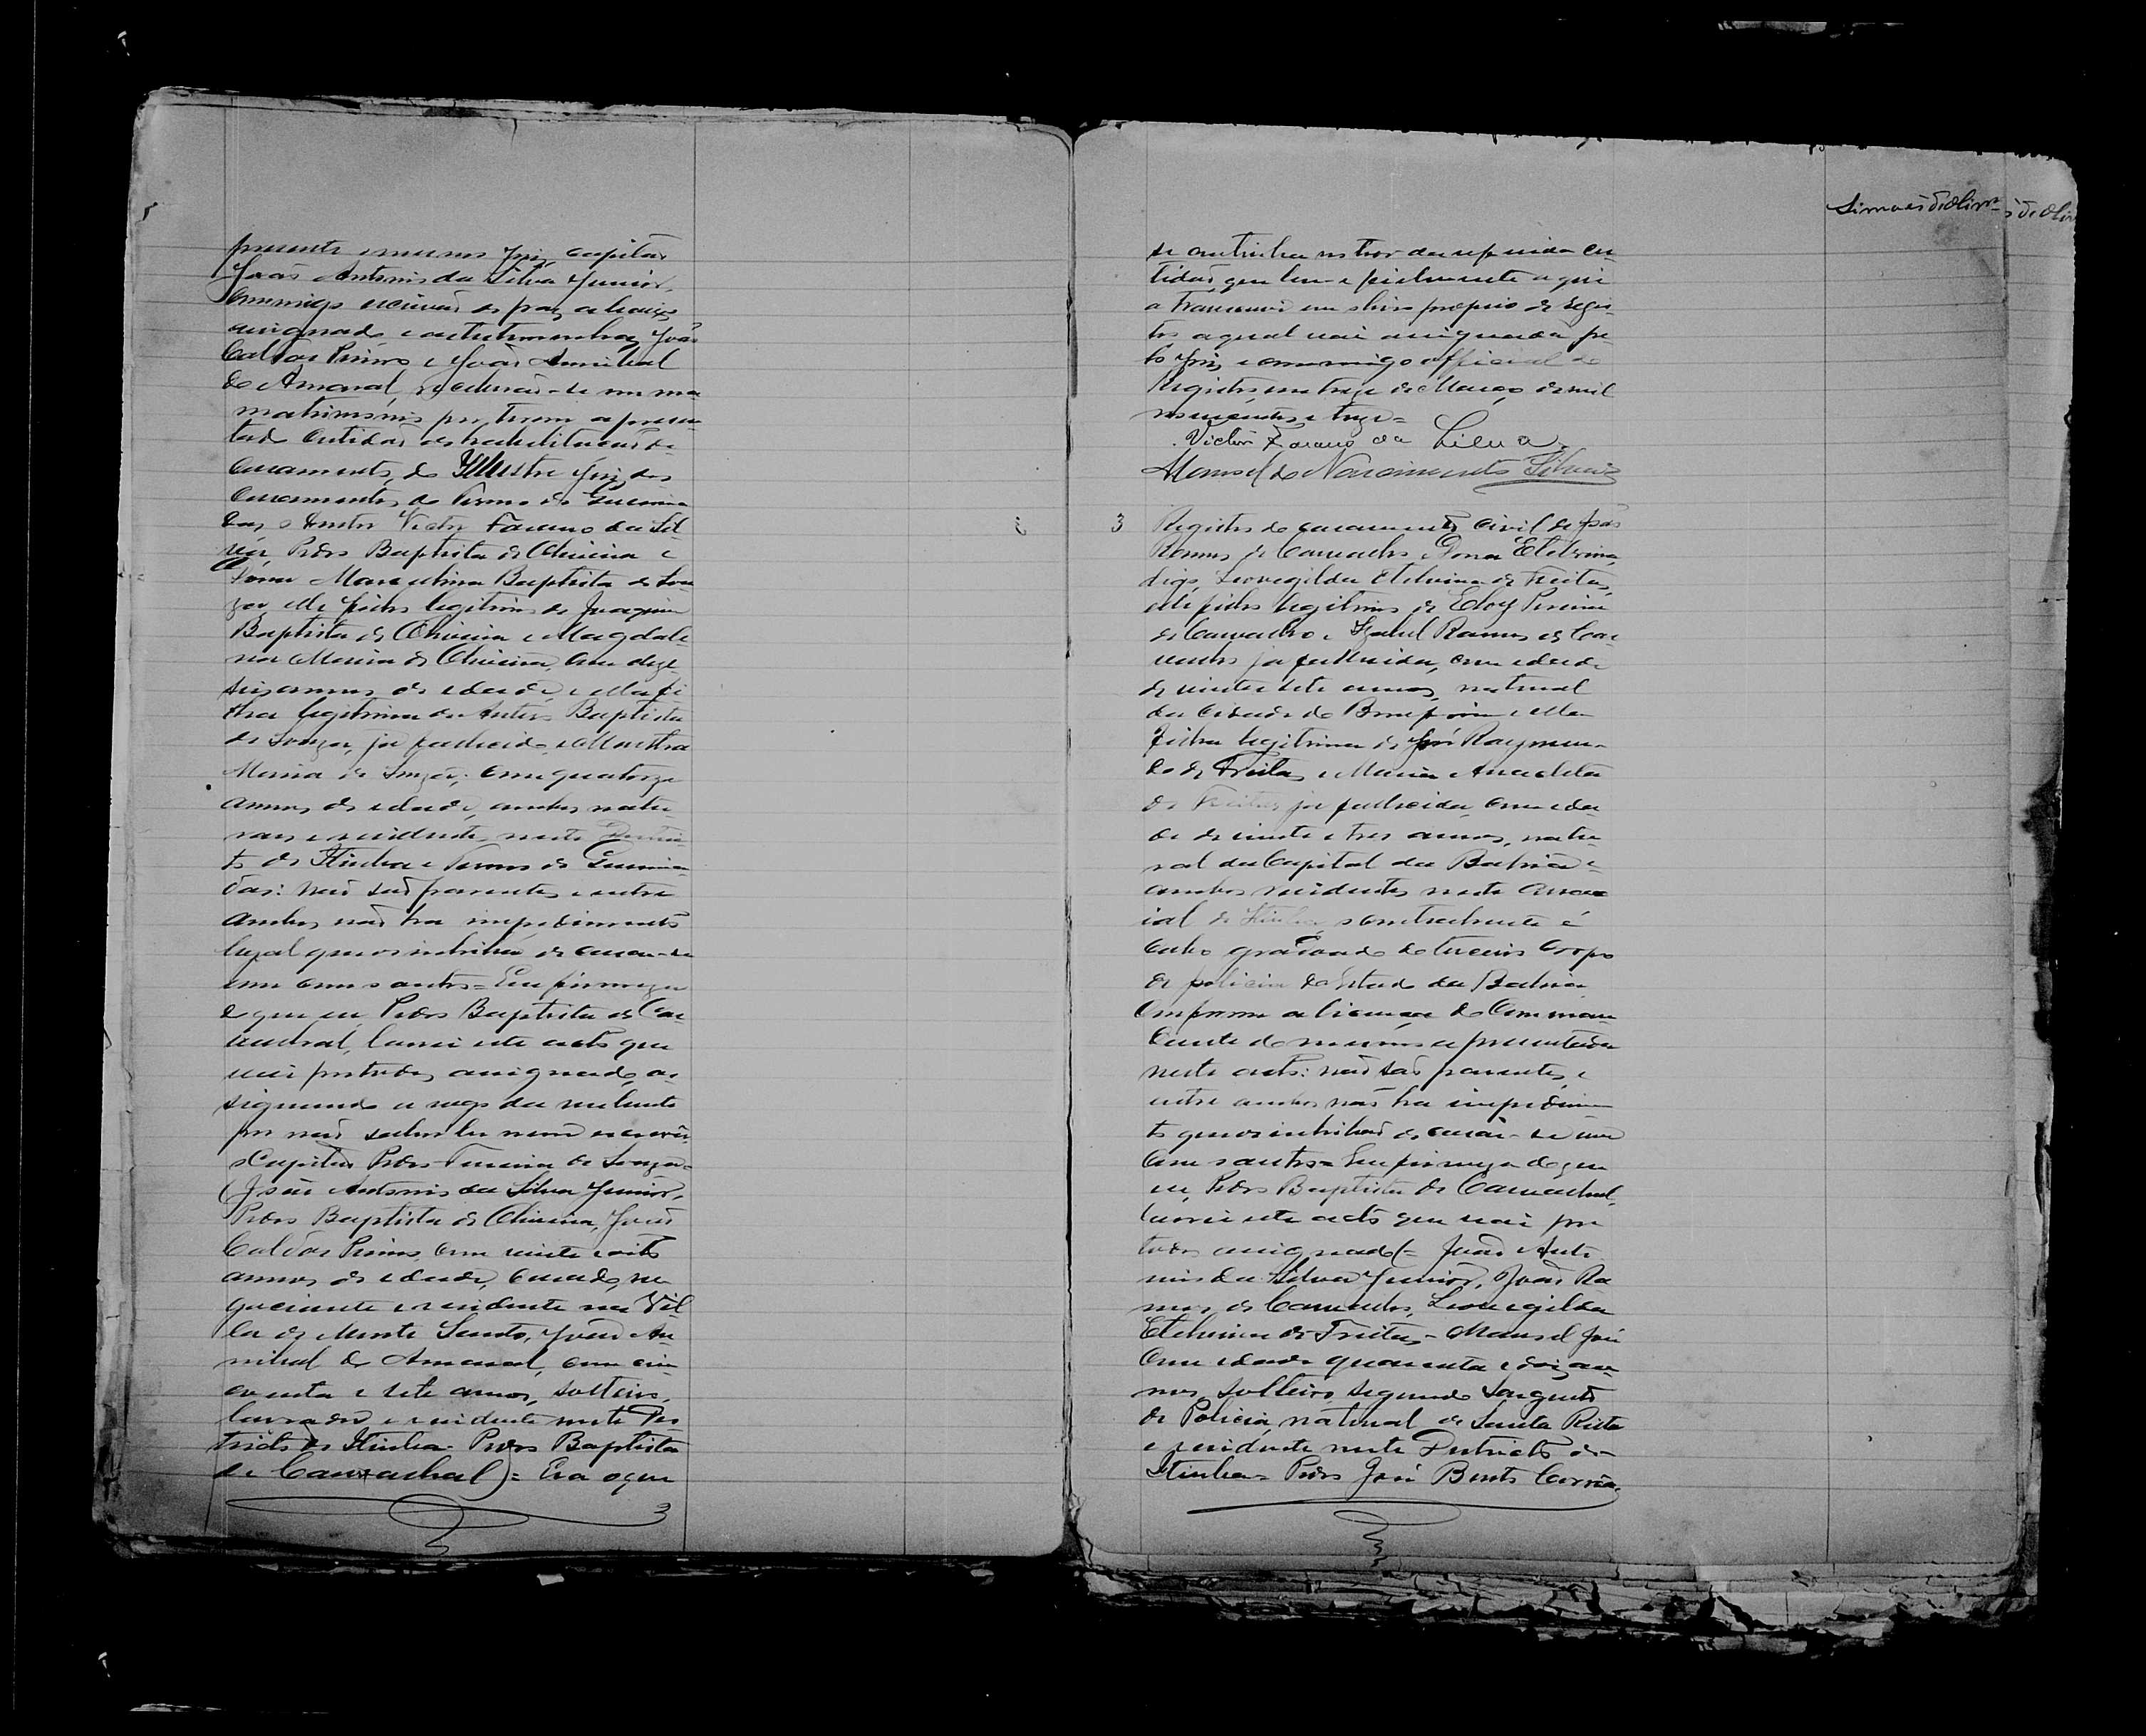 presente o mesmo Juiz, capitão
João Antonio da Silva Junior,
commigo escrivão de paz abaixo
assignado e as testemunhas João
Caldas Primo e João Annibal
do Amaral, receberão-se em ma
matrimonio por terem apresen
tado certidão de habilitação de
casamento, do Illustre Juiz dos
casamentos do Termo de Queima
das o doutor Victor Faranio da Sil
va, Pedro Baptista de Oliveira e
Dona Marculina Baptista de Sou
za elle filho legitimo de Joaquim
Baptista de Oliveira e Magdale
na Maria de Oliveira, com deze
seis annos de edade, e ella fi
lha legitima de Baptista
de Souza, ja fallecido, e
Maria de Souza, com quatorze
annos de edade, ambos natu
raes e residentes neste Distric
to de Itiuba e Termo de Queima
das: não são parentes e entre
ambos não ha impedimento
legal que os inhiba de casar-se
um com o outro = Em firmeza
do que eu Pedro Baptista de Car
vachal, lavrei este acto que
vai por todos assignado, as
signando a rogo da nubente
por não saber ler nem escrever
o Capitão Pedro Ferreira de Souza =
(João Antonio da Silva Junior,
Pedro Baptista de Oliveira, João
Caldas Primo, com vinte e oito
annos de edade, casado, ne
gociante e residente na Vil
la de Monte Santo, João An
nibal do Amaral, com cin
coenta e sete annos, solteiro,
lavrador, e residente neste Des
tricto de Itiuba = Pedro Baptista
de Carvachal) = Era o que
Simões de Olivra
se continha no theor da referida cer
tidão, que bem e fielmente aqui
a transcrevi em o livro proprio de regis
tro a qual vai assignada pe
lo Juiz e commigo official do
Registro, em treze de Março de mil
novecentos e treze =
Victor Faranio da Silva
Manoel do Nascimento
3 Registro do casamento civil de João
Ramos de Carvalho e Dona Etelvina,
digo, Leovegilda Etelvina de Freitas,
elle filho legitimo de Eloy Pereira
de Carvalho e Izabel Ramos de Car
valho ja fallecida, com edade
de vinte e sete annos, natural
da Cidade do Bomfim e ella
filha legitima de José Raymun-
do de Freitas e Maria Anacleta
de Freitas ja fallecida, com eda
de de vinte e tres annos, natu
ral da Capital da Bahia e
ambos residentes neste arraa
ial de Itiuba, o contrahente é
cabo graduado do terceiro Corpo
de policia do Estado da Bahia
conforme a licença do Comman
dante do mesmo apresentada
neste acto: não são parentes, e
entre ambos não ha impedimen
to que os inhibão de casar-se um
com o outro = Em firmeza do que
eu, Pedro Baptista de Carvachal,
lavrei este acto que vai por
todos assignado (= João Anto
nio da Silva Junior, João Ra
mos de Carvalho, Leovegilda
Etelvina de Freitas - Manoel José
com edade quarenta e dois an
nos, solteiro segundo Sargento
de Policia, natural de Santa Rita
e residente neste Districto de
Itiuba = Pedro José Bento Correia,